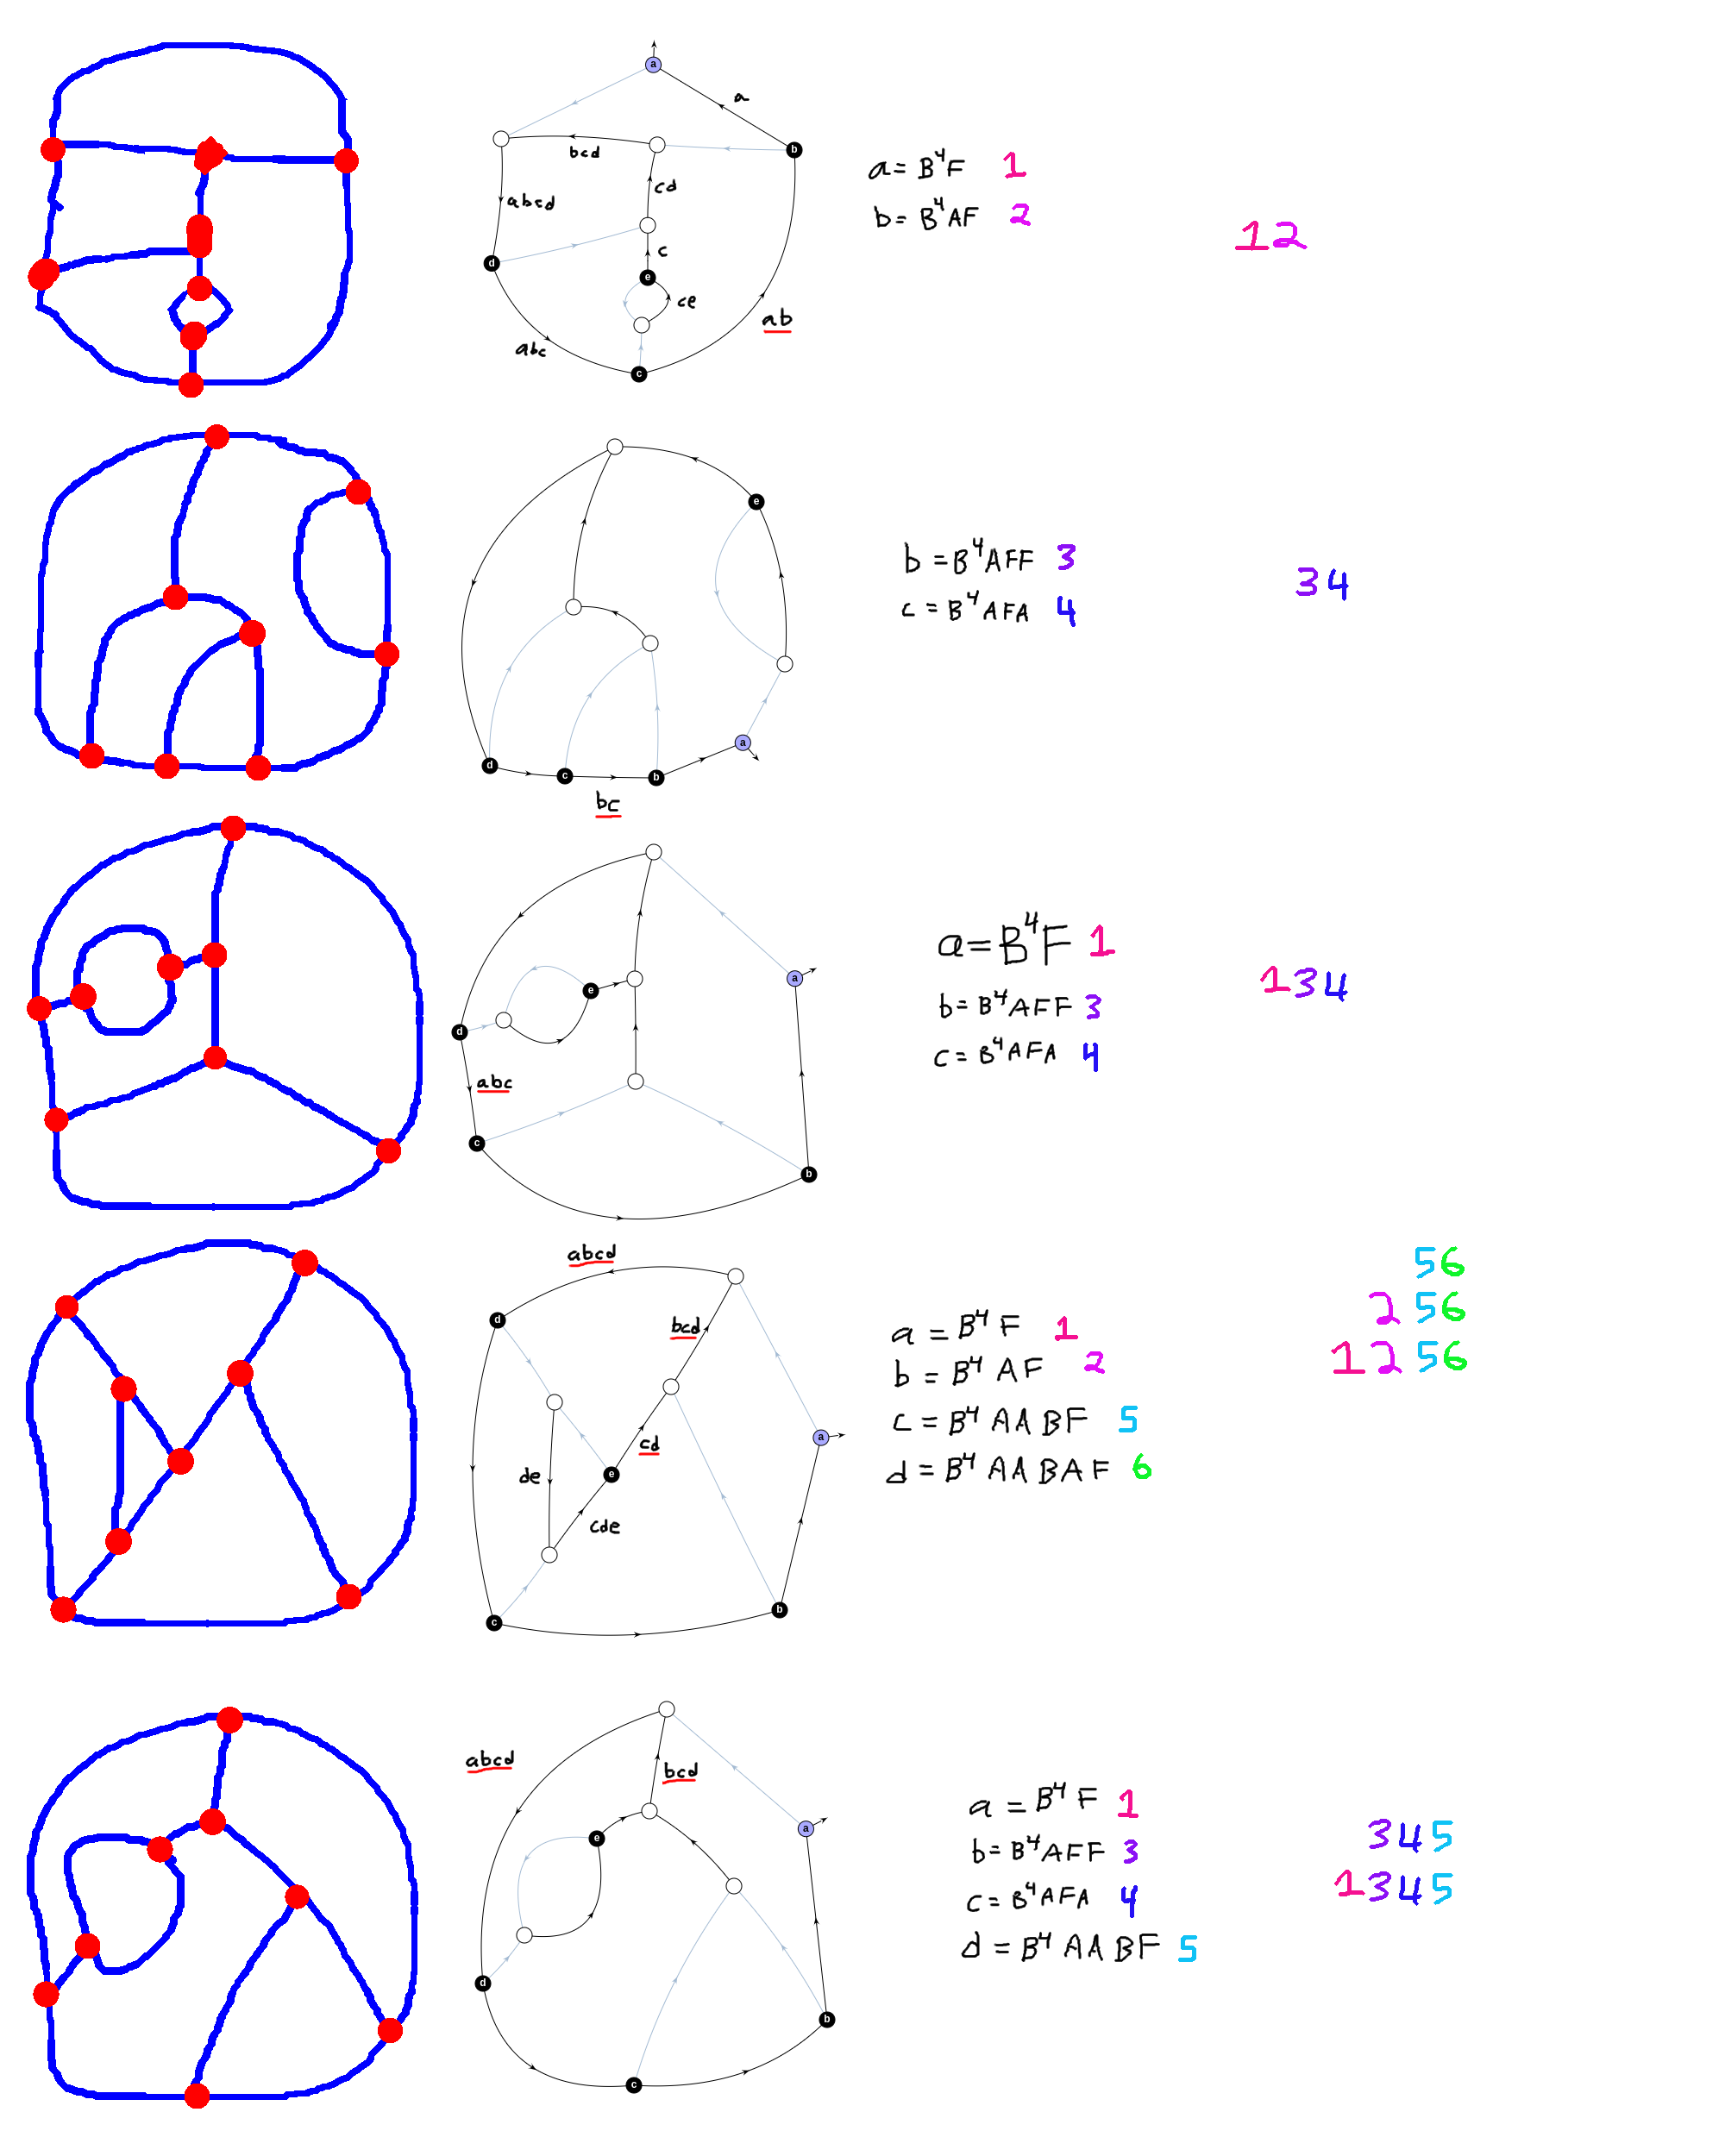 a
a
b
bcd
cd
abcd
c
d
e
ce
ab
abc
c
a = B⁴F 1
b = B⁴AF 2
12
e
a
d
c
b
bc
b = B⁴AFF 3
c = B⁴AFA 4
34
a
e
d
abc
c
b
a = B⁴F 1
b = B⁴AFF 3
c = B⁴AFA 4
134
abcd
d
bcd
a
cd
e
de
cde
c
b
a = B⁴F 1
b = B⁴AF 2
c = B⁴AABF 5
d = B⁴AABAF 6
56
256
1256
abcd
bcd
a
e
d
b
c
a = B⁴F 1
b = B⁴AFF 3
c = B⁴AFA 4
d = B⁴AABF 5
345
1345